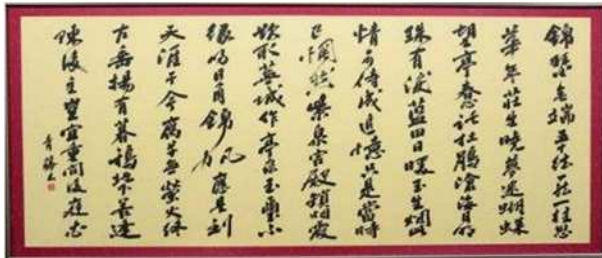 錦瑟無端五十弦一弦一柱思
華年莊生曉夢迷蝴蝶
望帝春心託杜鵑滄海月明
珠有淚藍田日暖玉生烟此
情可待成追憶只是當時
已惘然紫泉宮殿鎖烟霞
欲取蕪城作帝家玉璽不
緣歸日角錦帆應是到
天涯于今腐草無螢火終
古垂楊有暮鴉地下若逢
陳後主豈宜重問後庭花